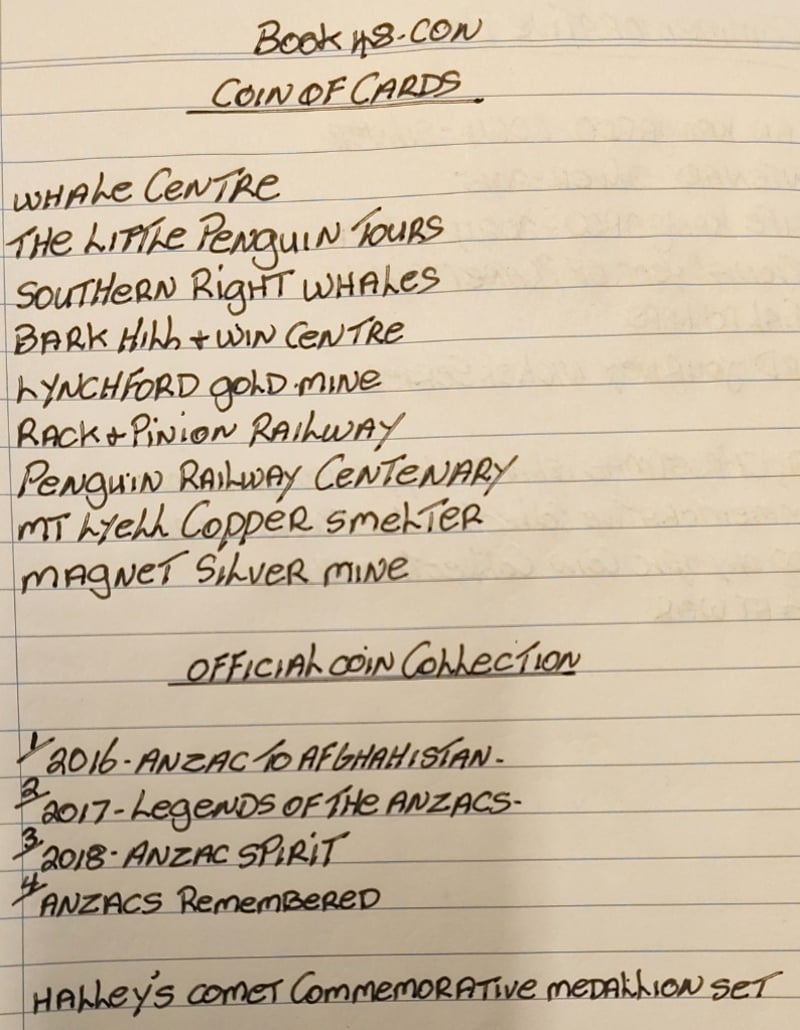 BOOK 48-CON
COIN OF CARDS
WHALE CENTRE
THE LITTLE PENGUIN TOURS
SOUTHERN RIGHT WHALES
BARK HILL + WIN CENTRE
LYNCHFORD GOLD.MINE
RACK + PINION RAILWAY
PENGUIN RAILWAY CENTENARY
MT LYELL COPPER SMELTER
MAGNET SILVER MINE
OFFICIAL COIN COLLECTION
1/ 2016-ANZAC TO AFGHAHISTAN-
2/ 2017-LEGENDS OF THE ANZACS-
3/ 2018-ANZAC SPIRIT
4/ ANZACS REMEMBERED
HALLEY'S COMET COMMEMORATIVE MEDALLION SET